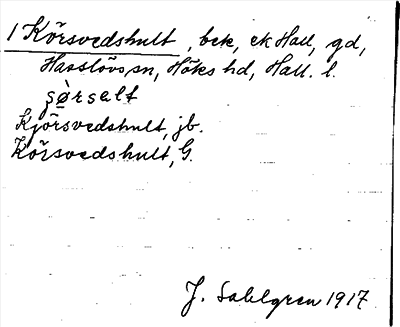 1 Körsvedshult, bek, ek Hall, gd,
Hasslövs sn, Höks hd, Hall. l.
Kjörsvedshult, jb.
Körsvedshult, G.
J. Sahlgren 1917